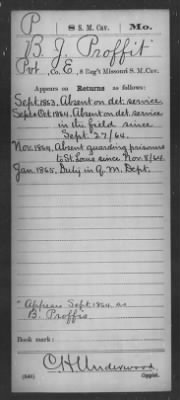 P 8 S. M. Cav. Mo.
B. J. Proffit
Pvt, Co. E, 8 Reg't Missouri S. M. Cav.
Appears on Returns as follows:
Sept. 1863, Absent on det. service
Sept & Oct. 1864, Absent on det. service
in the field since
Sept. 27/64.
Nov. 1864, Absent guarding prisoners
to St. Louis since Nov. 8/64
Jan. 1865, Duty in Q. M. Dept.
* Appears Sept. 1864 as
B. Proffis.
Book mark:
C H Underwood
(546) Copyist.